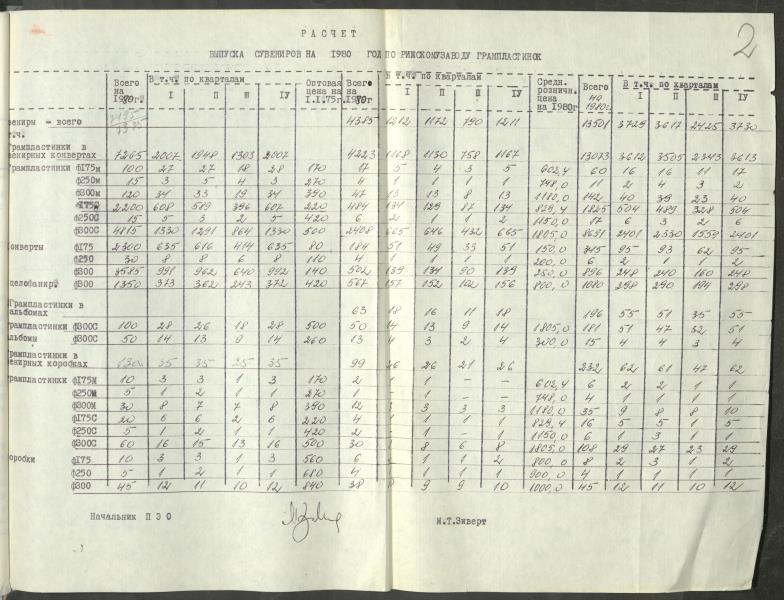 2
РАСЧЕТ
ВЫПУСКА СУВЕНИРОВ НА 1980 ГОД ПО РИЖСКОМУ ЗАВОДУ ГРАМПЛАСТИНОК
Всего на 1980г. В т.ч. по кварталам I П Ш IУ Оптовая цена на I.I.75г. Всего на 1980г В т.ч. по кварталам I П Ш IУ Средн. рознич. цена на 1980г Всего на 1980г. В т.ч. по кварталам I П Ш IУ
вениры - всего 4385 1212 1172 790 1211 13501 3729 3617 2425 3730
т.ч.
Грампластинки в
енирных конвертах 7265 2007 1948 1303 2007 4223 1168 1130 758 1167 13073 3612 3505 2343 3613
Грампластинки ф175м 100 27 27 18 28 170 17 5 4 3 5 602,4 60 16 16 11 17
ф250м 15 3 5 4 3 270 4 1 1 1 1 748,0 11 2 4 3 2
ф300м 120 34 33 19 34 390 47 13 13 8 13 1180,0 142 40 39 23 40
ф175С 2200 608 589 396 607 220 484 134 129 87 134 829,4 1825 504 489 328 504
ф250С 15 5 3 2 5 420 6 2 1 1 2 1150,0 17 6 3 2 6
ф300С 4815 1330 1291 864 1330 500 2408 665 646 432 665 1805,0 8691 2401 2330 1559 2401
онверты ф175 2300 635 616 414 635 80 184 51 49 33 51 150,0 345 95 93 62 95
ф250 30 8 8 6 8 110 4 1 1 1 1 200,0 6 2 1 1 2
ф300 3585 991 962 640 992 140 502 139 134 90 139 250,0 896 248 240 160 248
целофанир. ф300 1350 373 362 243 372 420 567 157 152 102 156 800,0 1080 298 290 194 298
Грампластинки в
альбомах 63 18 16 11 18 196 55 51 35 55
рампластинки ф300С 100 28 26 18 28 500 50 14 13 9 14 1805,0 181 51 47 32 51
льбомы ф300С 50 14 13 9 14 260 13 4 3 2 4 300,0 15 4 4 3 4
рампластинки в
енирных коробках 130 35 35 25 35 99 26 26 21 26 232 62 61 47 62
рампластинки ф175М 10 3 3 1 3 170 2 1 1 - - 602,4 6 2 2 1 1
ф250М 5 1 2 1 1 270 1 - 1 - - 748,0 4 1 1 1 1
ф300М 30 8 7 7 8 390 12 3 3 3 3 1180,0 35 9 8 8 10
ф175С 20 6 6 2 6 220 4 1 1 1 1 829,4 16 5 5 1 5
ф250С 5 1 2 1 1 420 2 - 1 - 1 1150,0 6 1 3 1 1
ф300С 60 16 15 13 16 500 30 8 8 6 8 1805,0 108 29 27 23 29
оробки ф175 10 3 3 1 3 560 6 1 1 2 800,0 8 2 3 1 2
ф250 5 1 2 1 1 680 4 1 1 1 1 900,0 4 1 1 1 1
ф300 45 12 11 10 12 840 38 9 9 10 1000,0 45 12 11 10 12
Начальник П Э О М.Т.Зиверт